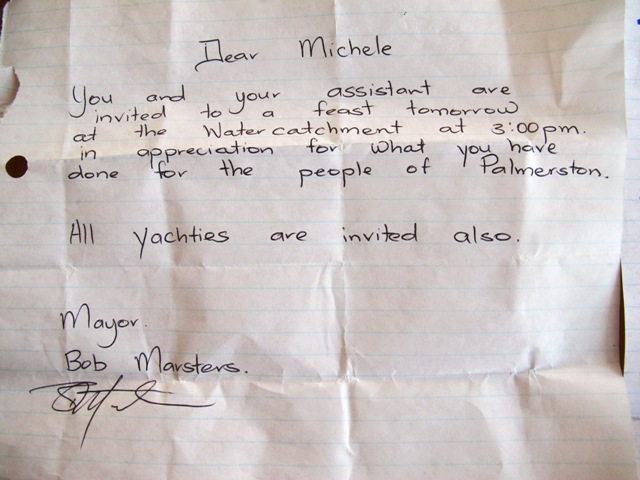 Dear Michele
You and your assistant are
invited to a feast tomorrow
at the Watercatchment at 3:00pm.
in appreciation for what you have
done for the people of Palmerston.
All yachties are invited also.
Mayor.
Bob Marsters.